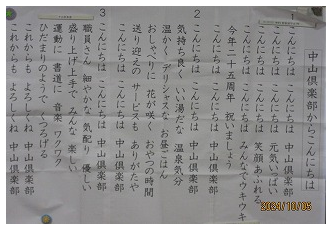 中山倶楽部からこんにちは
こんにちは こんにちは 中山倶楽部
こんにちは こんにちは 元気いっぱい
こんにちは こんにちは 笑顔あふれる
こんにちは こんにちは みんなでウキウキ
今年二十五周年 祝いましょう
2
こんにちは こんにちは 中山倶楽部
気持ち良く いい湯だな 温泉気分
温かく デリシャスな お昼ごはん
おしゃべりに 花が咲く おやつの時間
送り迎えの サービスも ありがたや
3
こんにちは こんにちは 中山倶楽部
職員さん 細やかな 気配り 優しい
盛り上げ上手で みんな 楽しい
運動に 書道に 音楽 ワクワク
ひだまりのようで くつろげる
これからも よろしくね 中山倶楽部
これからも よろしくね 中山倶楽部
2024/10/05